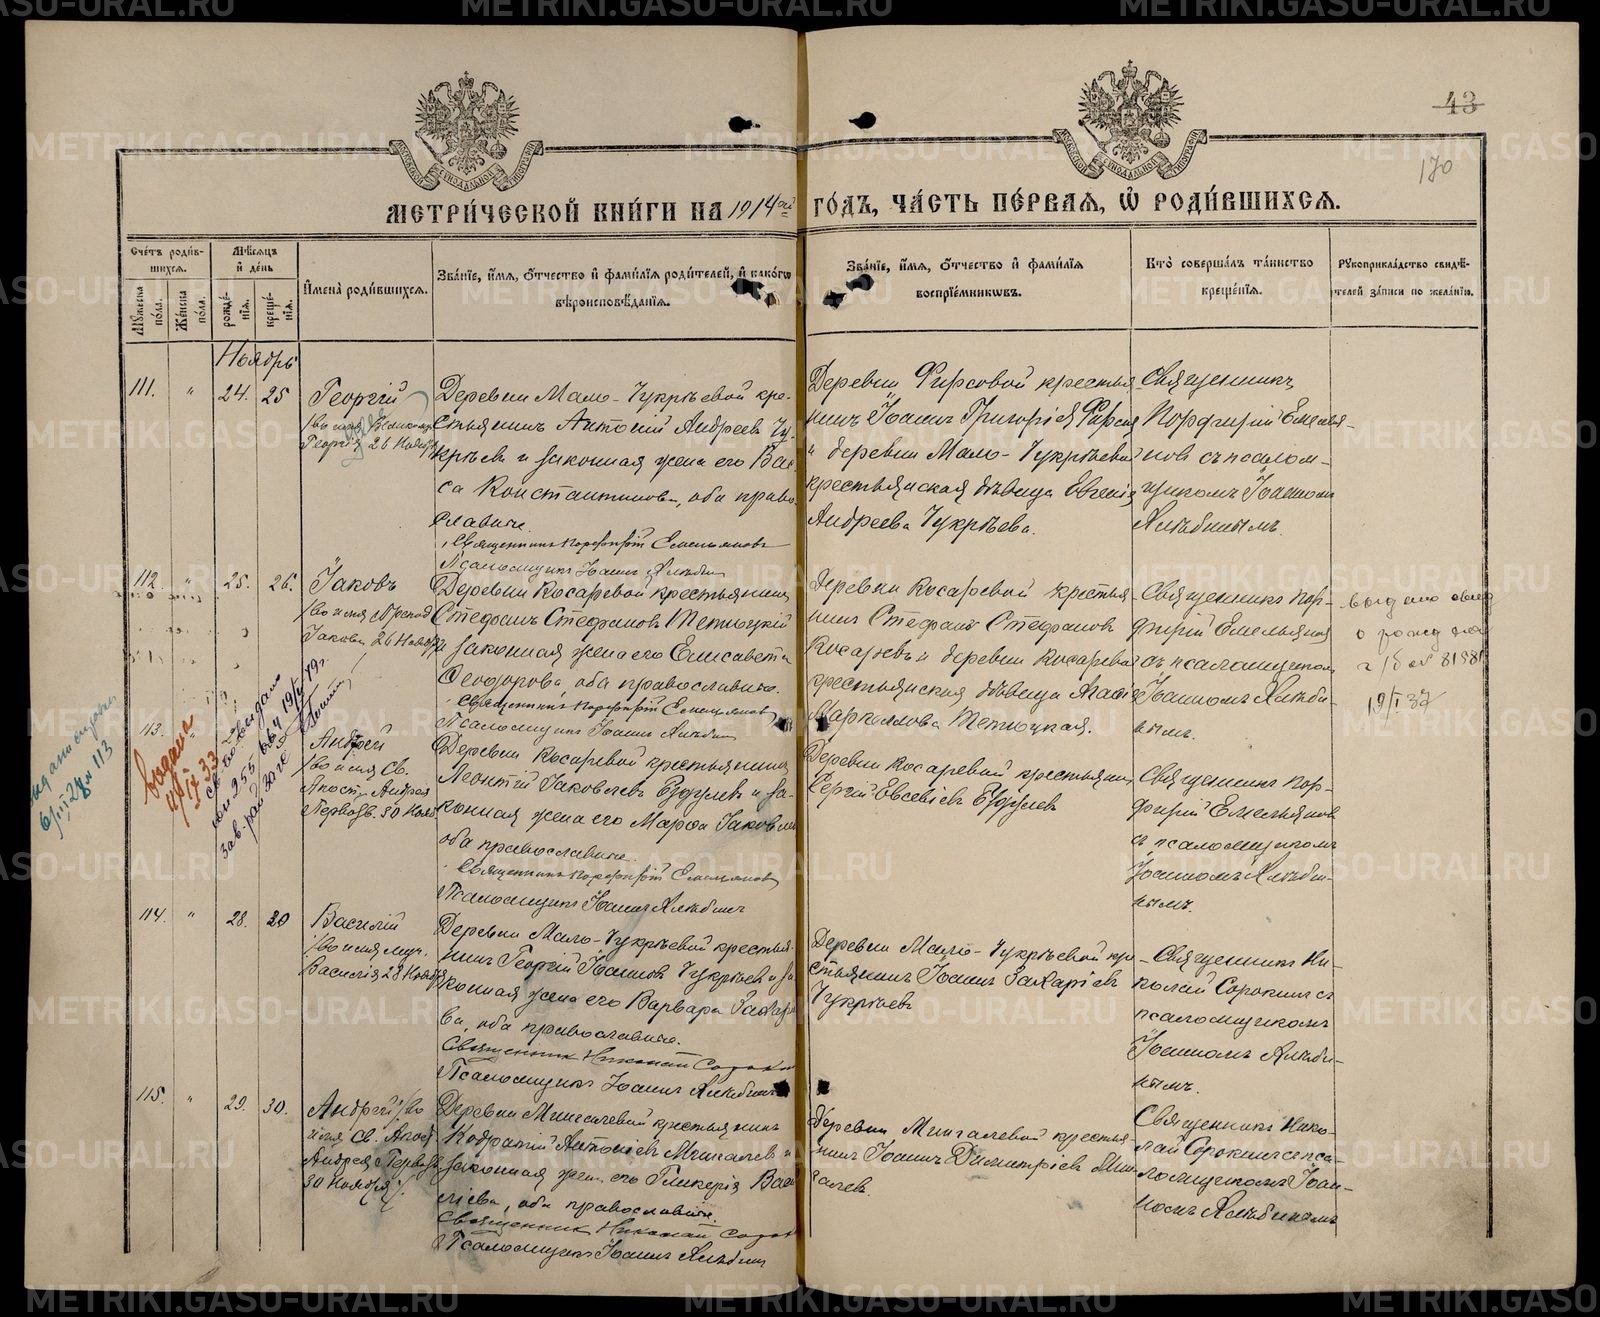 43
170
МЕТРИ́ЧЕСКОЙ КНИ́ГИ НА 1914ый ГО́ДЪ, ЧА́СТЬ ПЕ́РВАѦ, Ѽ РОДИ́ВШИХСѦ.
Сче́тъ роди́вшихсѧ.
Мꙋжеска по́ла.
Же́нска по́ла.
Мѣ́сѧцъ и҆ де́нь
рожде́нїѧ.
креще́нїѧ.
И҆мена̀ роди́вшихсѧ.
Зва́нїе, и҆́мѧ, ѻ҆́тчество и҆ фами́лїѧ роди́телей, и҆ како́гѡ
вѣроисповѣ́данїѧ.
Зва́нїе, и҆́мѧ, ѻ҆́тчество и҆ фами́лїѧ
воспрїе́мникѡвъ.
Кто̀ соверша́лъ та́инство
креще́нїѧ.
Рꙋкоприкла́дство свидѣ́-
телей за́писи по жела́нїю.
Ноябрь
111. " 24. 25
Георгій
Георгія 26 Ноября
Деревни Мало-Чукрѣевой кре-
стьянинъ Антоній Андреевъ Чу-
крѣевъ и законная жена его Ва-
са Константинова, оба право-
славные.
Священникъ Порфирій Емельяновъ
Псаломщикъ Іоаннъ Хлѣбинъ
Деревни Фирсовой крестья-
нинъ Іоаннъ Григоріевъ Фирсовъ
и деревни Мало-Чукрѣевой
крестьянская дѣвица Евгенія
Андреева Чукрѣева.
Священникъ
Порфирій Емелья-
новъ съ псалом-
щикомъ Іоанномъ
Хлѣбинымъ.
112. " 25. 26.
Іаковъ
/во имя преподоб.
Іакова 26 Ноября
Деревни Косаревой крестьянинъ
Стефанъ Стефановъ Тетюцкій
и законная жена его Елисавета
Феодорова, оба православные.
Священникъ Порфирій Емельяновъ
Псаломщикъ Іоаннъ Хлѣбинъ
Деревни Косаревой крестья-
нинъ Стефанъ Стефановъ
Косаревъ и деревни Косаревой
крестьянская дѣвица Агафія
Тетюцкая.
Священникъ Пор-
фирій Емельяновъ
съ псаломщикомъ
Іоанномъ Хлѣби-
нымъ.
выдано
о рожд
19/I 37
113. "
Андрей
/во имя Св.
Апост. Андрея
Первозв. 30 Нояб.
Деревни Косаревой крестьянинъ
Леонтій Іаковлевъ Бурдуевъ и за-
конная жена его Марфа Іаковлева
оба православные.
Священникъ Порфирій Емельяновъ
Псаломщикъ Іоаннъ Хлѣбинъ
Деревни Косаревой крестьянинъ
Сергій Евсевіевъ
Священникъ Пор-
фирій Емельяновъ
съ псаломщикомъ
Іоанномъ Хлѣби-
нымъ.
№ 113
выдана
33
выдано
зав.
114. " 28. 30
Василій
/во имя муч.
Василія 28 Ноября
Деревни Мало-Чукрѣевой крестья-
нинъ Георгій Іоанновъ Чукрѣевъ и за-
конная жена его Варвара Захарie-
ва, оба православные.
Священник Николай Сорокин
Псаломщикъ Іоаннъ Хлѣбинъ
Деревни Мало-Чукрѣевой кре-
стьянинъ Іоаннъ Захаріевъ
Чукрѣевъ
Священникъ Ни-
колай Сорокинъ съ
псаломщикомъ
Іоанномъ Хлѣби-
нымъ.
115. " 29. 30.
Андрей /во
имя Св. Апост.
Андрея Первозв.
30 Ноября/.
Деревни Мингалевой крестьянинъ
Кодратій Антоніевъ Мингалевъ и
законная жена его Гликерія Васи-
ліева, оба православные.
Священник Николай Сорокин
Псаломщикъ Іоаннъ Хлѣбинъ
Деревни Мингалевой крестья-
нинъ Іоаннъ Димитріевъ Мин-
галевъ.
Священникъ Нико-
лай Сорокинъ съ пса-
ломщикомъ Іоан-
номъ Хлѣбинымъ
METRIKI.GASO-URAL.RU